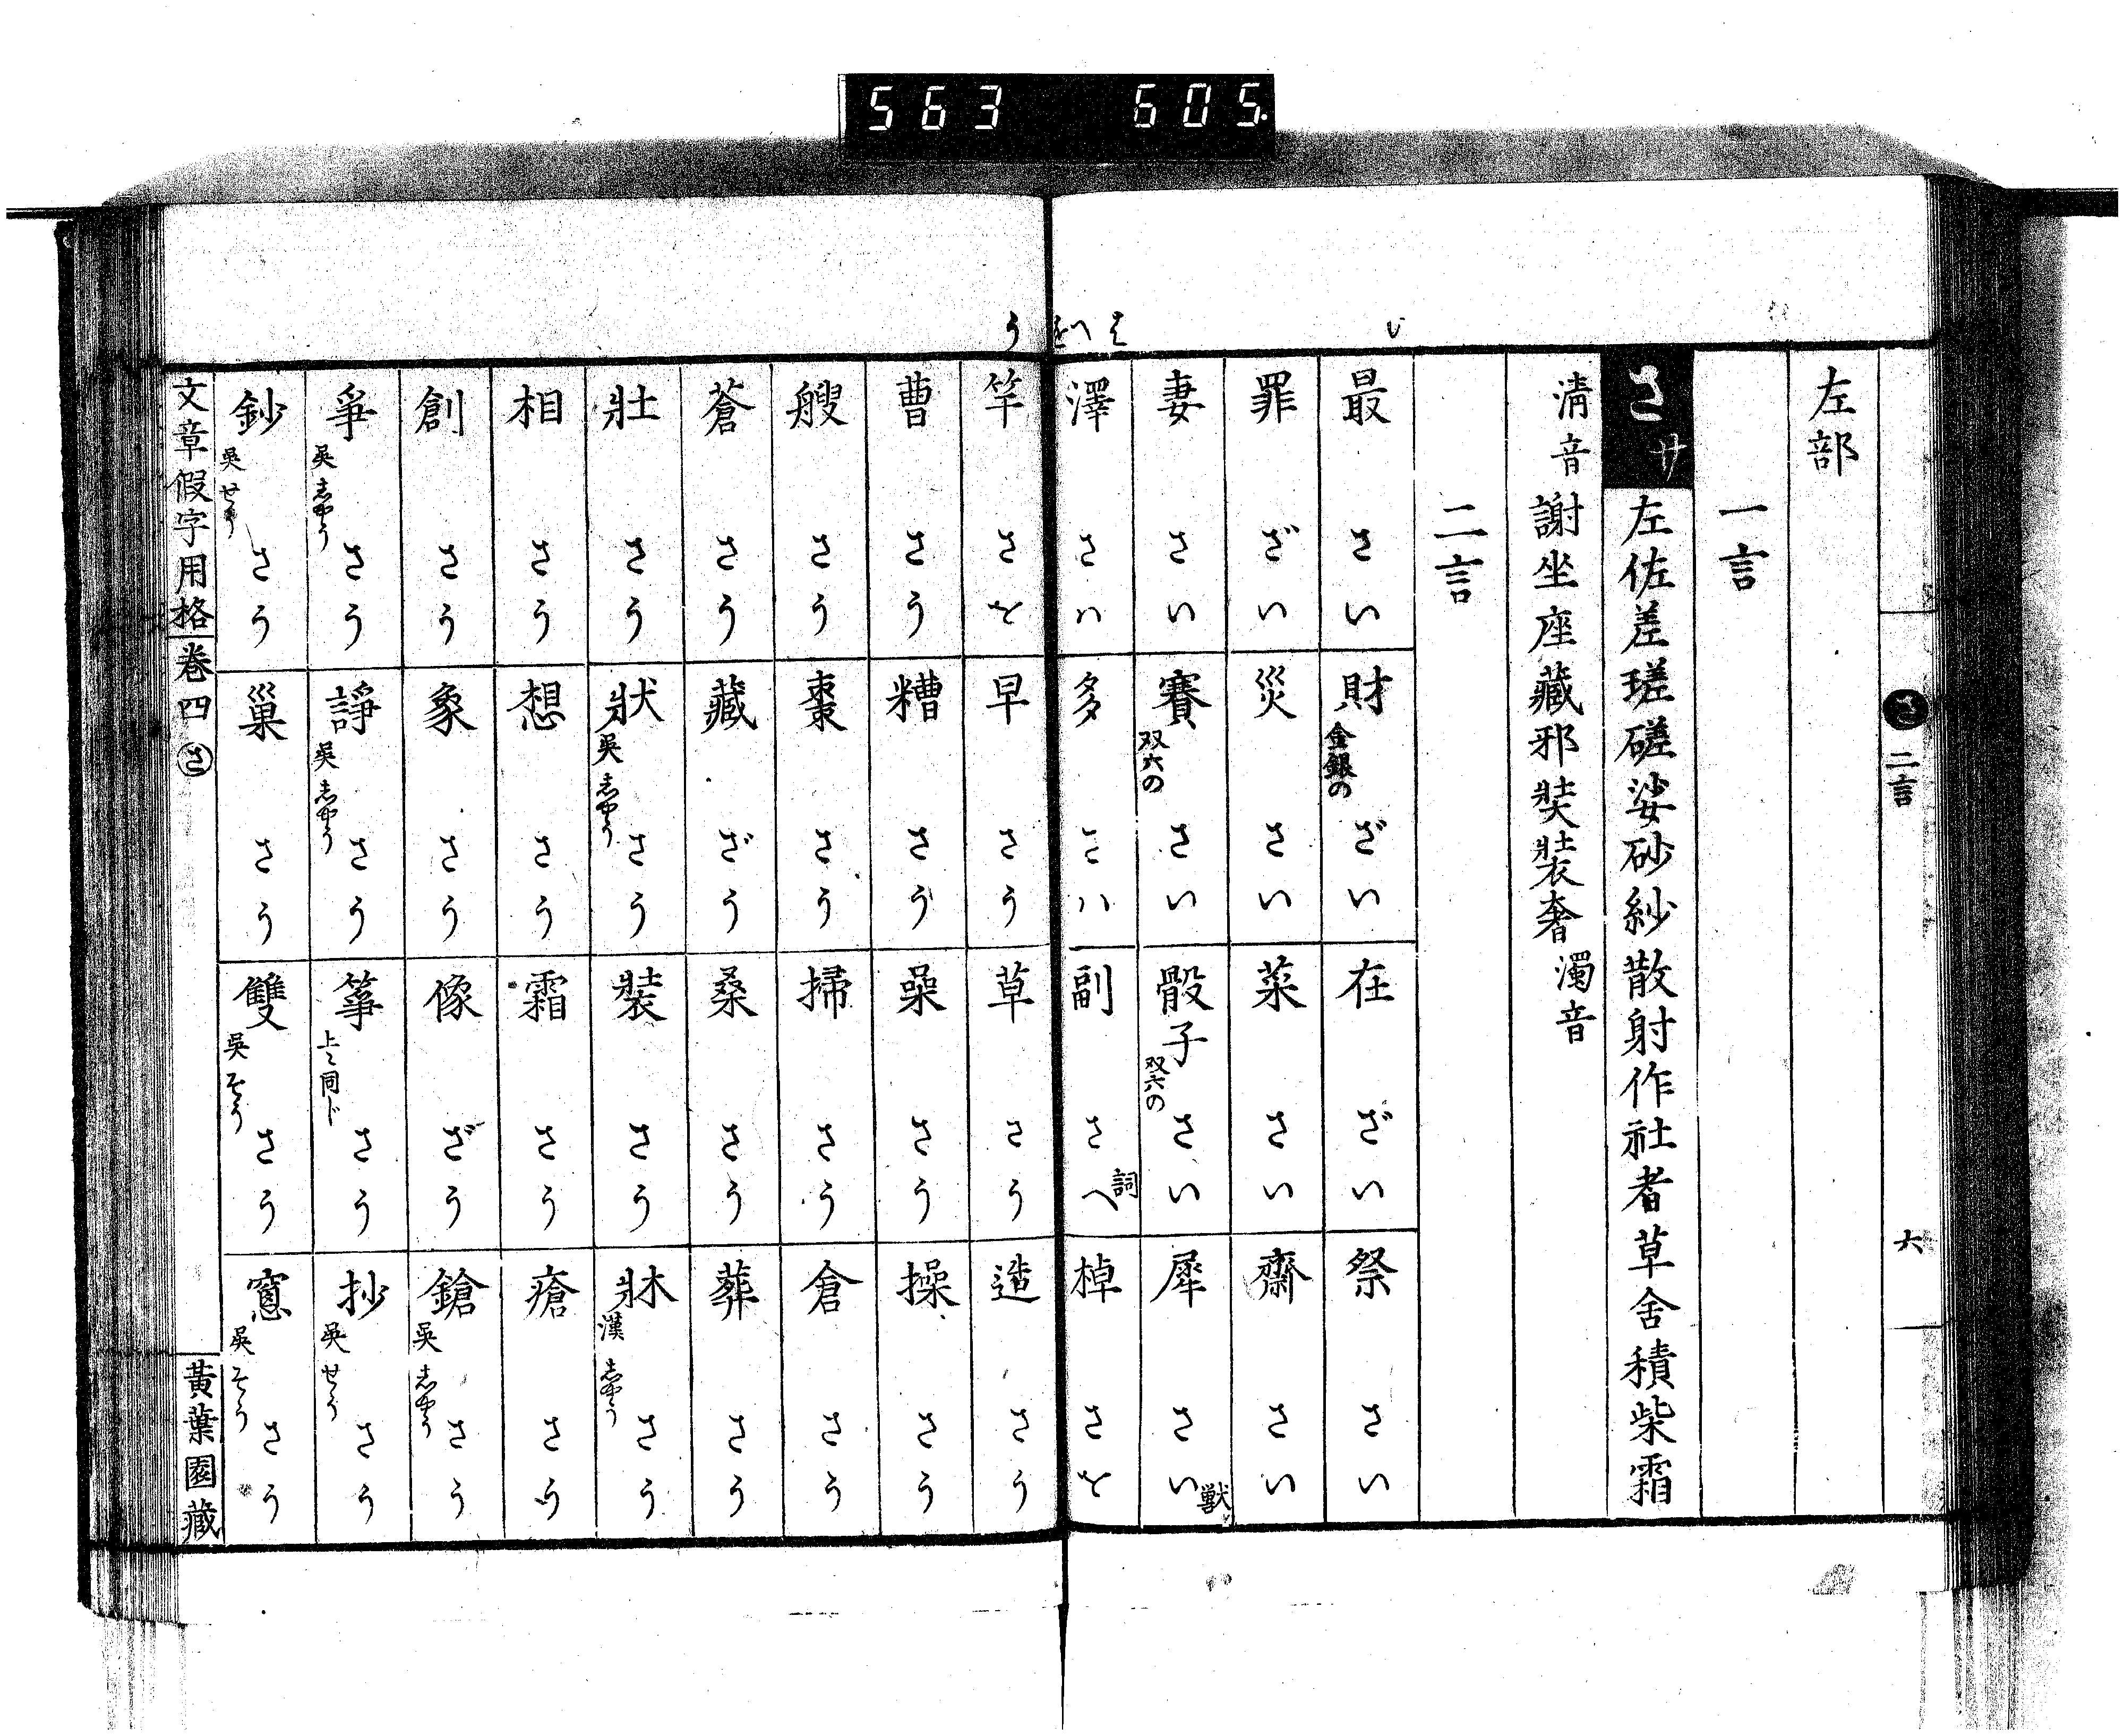 563 605.
さ 二言
六
左部
一言
さ サ 左佐差瑳磋娑砂紗散射作社者草舍積柴霜
清音 謝坐座藏邪奘裝奢 濁音
二言
い
最 さい
財 金銀の ざい
在 ざい
祭 さい
罪 ざい
災 さい
菜 さい
齋 さい
妻 さい
賽 双六の さい
骰子 双六の さい
犀 さい 獣
は へ を
澤 さハ
多 さハ
副 さへ 詞
棹 さを
竿 さを
う
早 さう
草 さう
造 さう
曹 さう
糟 さう
喿 さう
操 さう
艘 さう
棗 さう
掃 さう
倉 さう
蒼 さう
藏 ざう
桑 さう
葬 さう
壯 さう
狀 吳 志やう さう
裝 さう
牀 漢 志やう さう
相 さう
想 さう
霜 さう
瘡 さう
創 さう
象 さう
像 ざう
鎗 吳 志やう さう
爭 吳 志やう さう
諍 吳 志やう さう
箏 上ミ同じ さう
抄 吳 せう さう
鈔 吳 せう さう
巢 さう
雙 吳 そう さう
窻 吳 そう さう
文章假字用格 卷四 さ
黃葉園藏